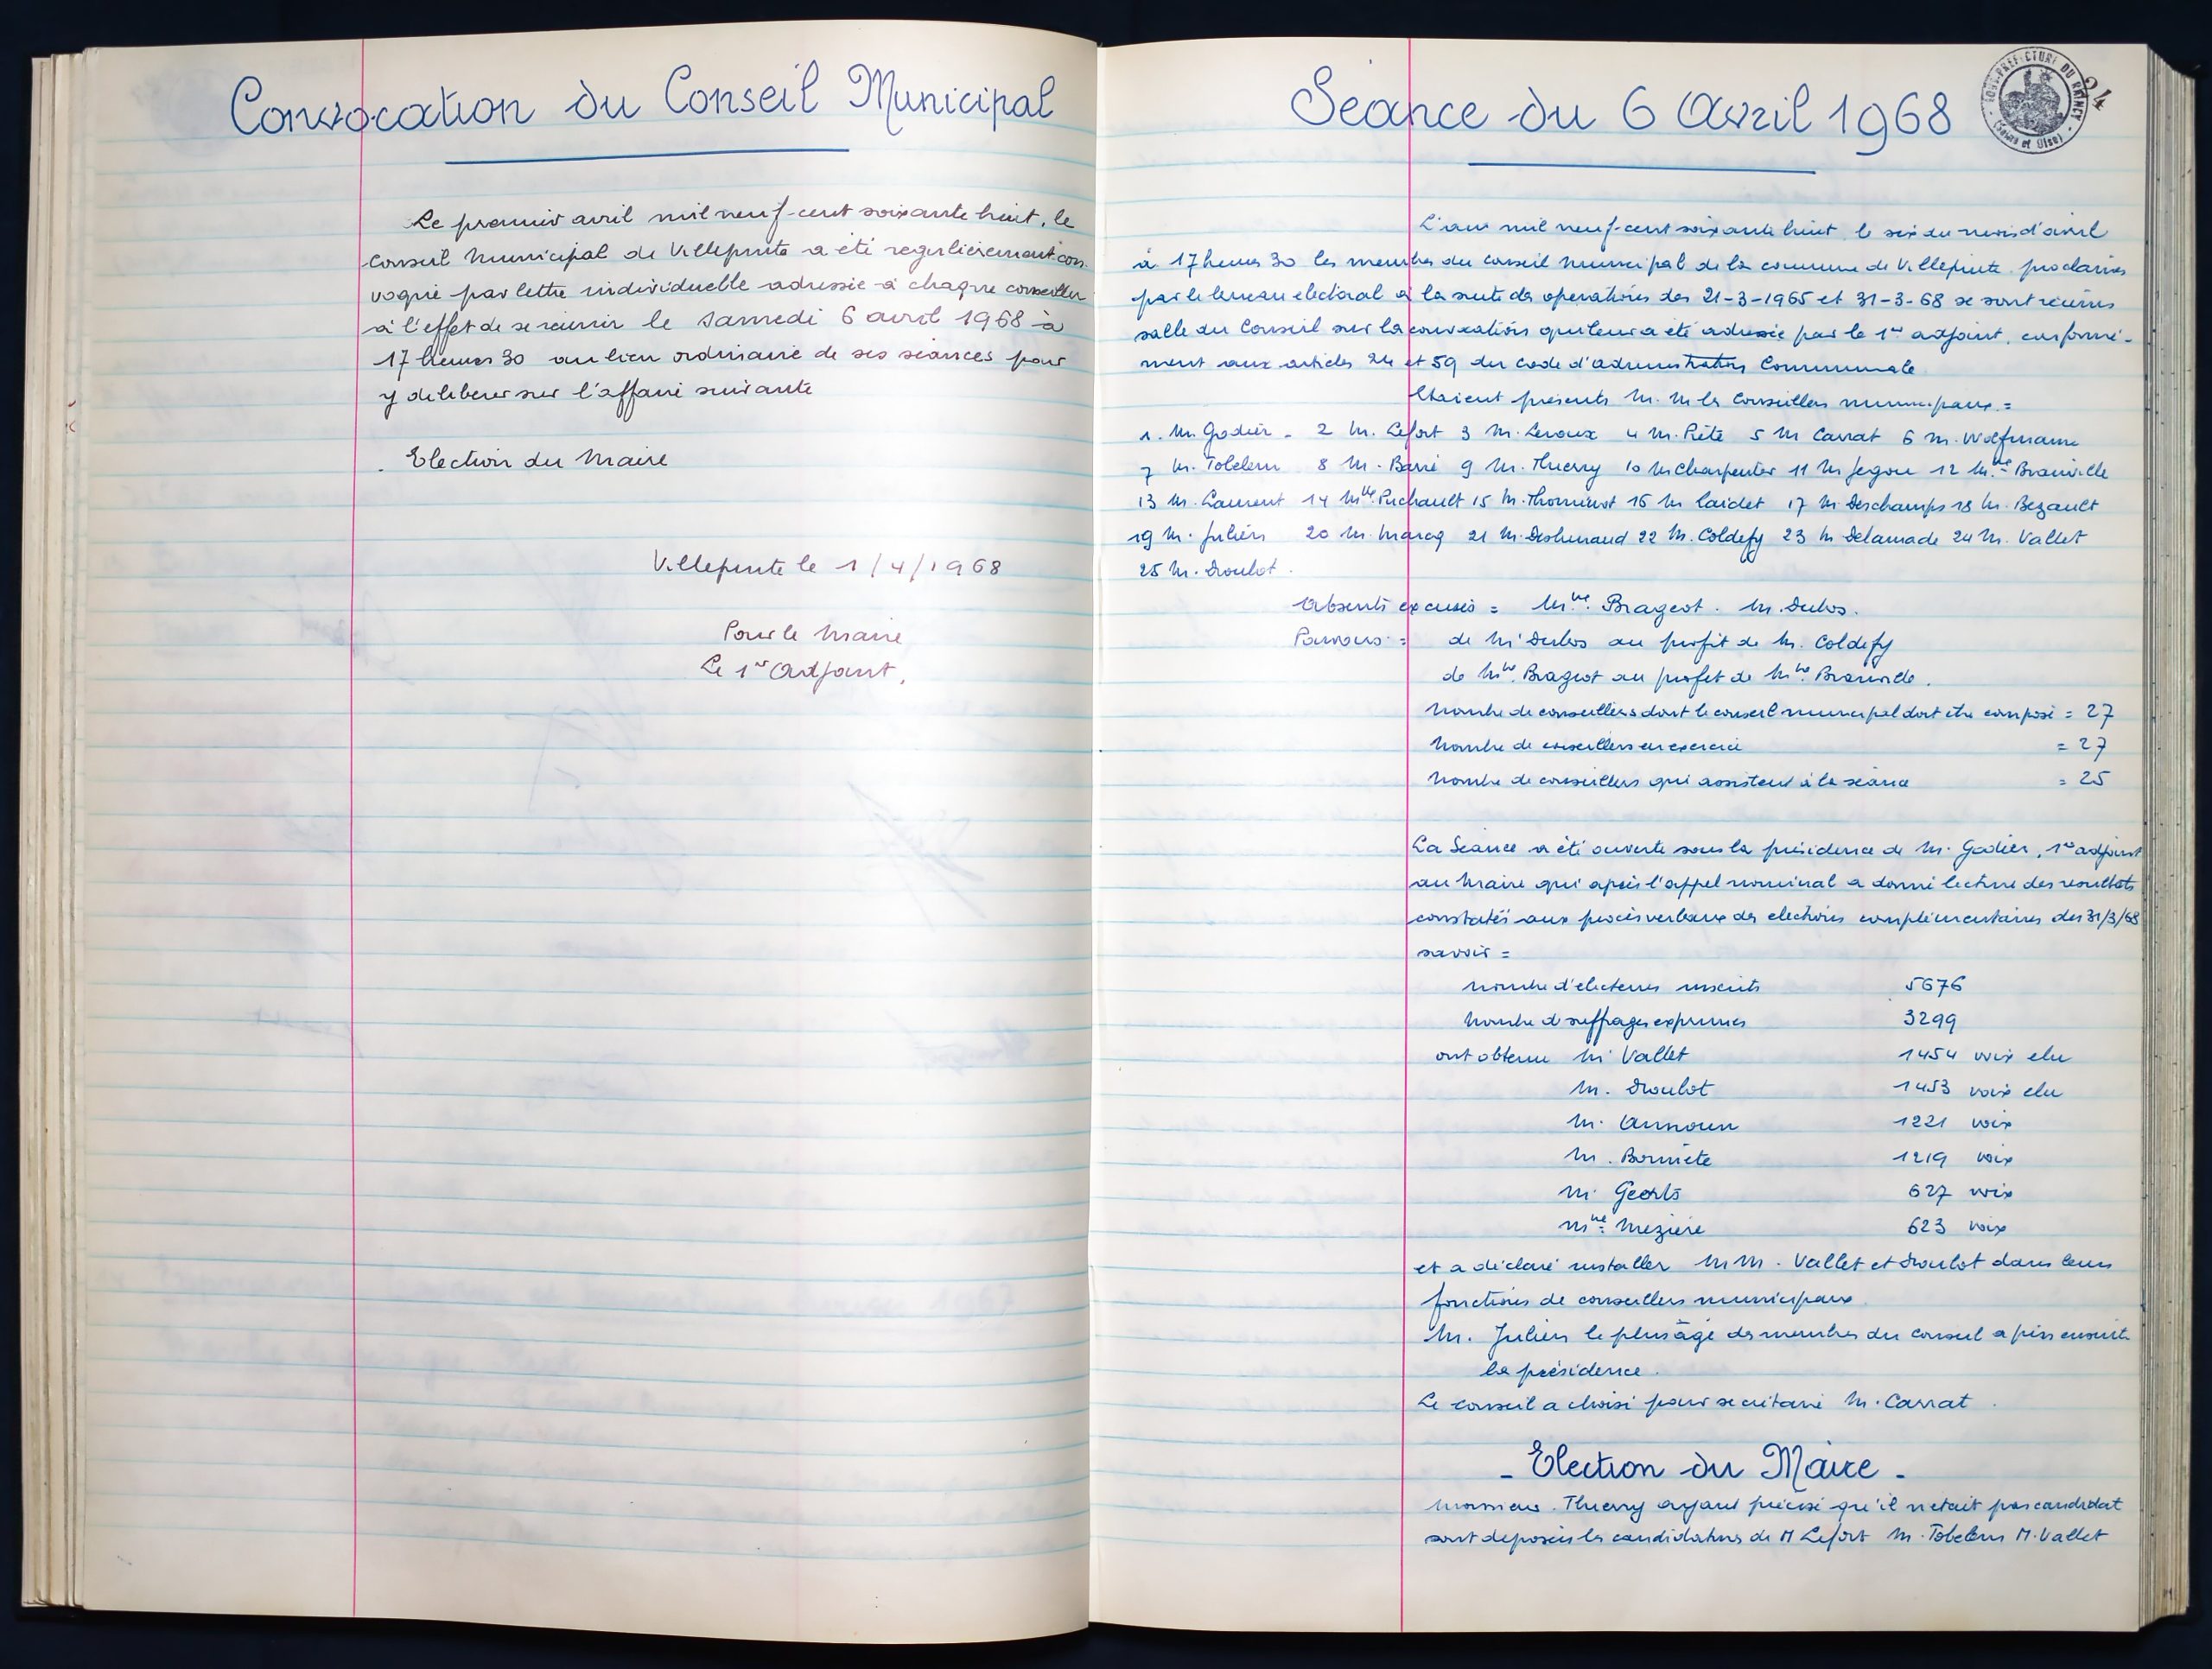 Convocation du Conseil Municipal
Le premier avril mil neuf-cent soixante huit, le
Conseil Municipal de Villepinte a été regulièrement con-
voqué par lettre individuelle adressée à chaque conseiller
à l'effet de se réunir le Samedi 6 avril 1968 à
17 heures 30 au lieu ordinaire de ses séances pour
y deliberer sur l'affaire suivante
- Election du Maire
Villepinte le 1/4/1968
Pour le Maire
Le 1er Adjoint,
Séance du 6 Avril 1968
SOUS-PREFECTURE DU RAINCY
(Seine et Oise)
24
L'an mil neuf-cent soixante huit, le six du mois d'avril
à 17 heures 30 les membres du conseil municipal de la commune de Villepinte proclamés
par le bureau electoral à la suite des operations des 21-3-1965 et 31-3-68 se sont réunis
salle du Conseil sur la convocation qui leur a été adressée par le 1er adjoint, conformé-
ment aux articles 24 et 59 du code d'administration Communale
Etaient présents M. M les Conseillers municipaux =
1. M. Godier - 2 M. Lefort 3 M. Leroux 4 M. Piété 5 M Carrat 6 M. Wolfmann
7 M. Tobelem 8 M. Barré 9 M. Thierry 10 M Charpentier 11 M Jegou 12 Mme Brainville
13 M. Laurent 14 Mme Puchault 15 M. Thominot 16 M Caidet 17 M. Deschamps 18 M. Bezault
19 M. Julien 20 M. Marcq 21 M. Deshenaud 22 M. Coldefy 23 M Delamade 24 M. Vallet
25 M. Droulot.
Absents excusés = Mme Brageot. M. Dubos.
Pouvoirs = de M. Dubos au profit de M. Coldefy
de Mme Brageot au profit de Mme Brainville.
Nombre de conseillers dont le conseil municipal doit être composé = 27
Nombre de conseillers en exercice = 27
Nombre de conseillers qui assistent à la séance = 25
La Séance a été ouverte sous la présidence de M. Godier, 1er adjoint
au Maire qui après l'appel nominal a donné lecture des resultats
constatés aux procès verbaux des elections complémentaires du 31/3/68
savoir =
Nombre d'electeurs inscrits 5676
Nombre d suffrages exprimés 3299
ont obtenu M. Vallet 1454 voix elu
M. Droulot 1453 voix elu
M. Announ 1221 voix
M. Borniete 1219 voix
M. Geerts 627 voix
Mme Mezière 623 voix
et a déclaré installer MM. Vallet et Droulot dans leurs
fonctions de conseillers municipaux.
M. Julien le plus âgé des membres du conseil a pris ensuite
la présidence.
Le conseil a choisi pour secrétaire M. Carrat.
- Election du Maire -
Monsieur. Thierry ayant précisé qu'il n'etait pas candidat
sont deposées les candidatures de M Lefort M. Tobelem M. Vallet